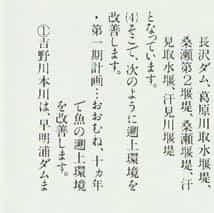 長沢ダム、葛原川取水堰堤、
桑瀬第２堰堤、桑瀬堰堤、汗
見取水堰堤、汗見川堰堤
となっています。
⑷そこで、次のように遡上環境を
改善します。
・第一期計画…おおむね、十ヵ年
で魚の遡上環境
を改善します。
①吉野川本川は、早明浦ダムま